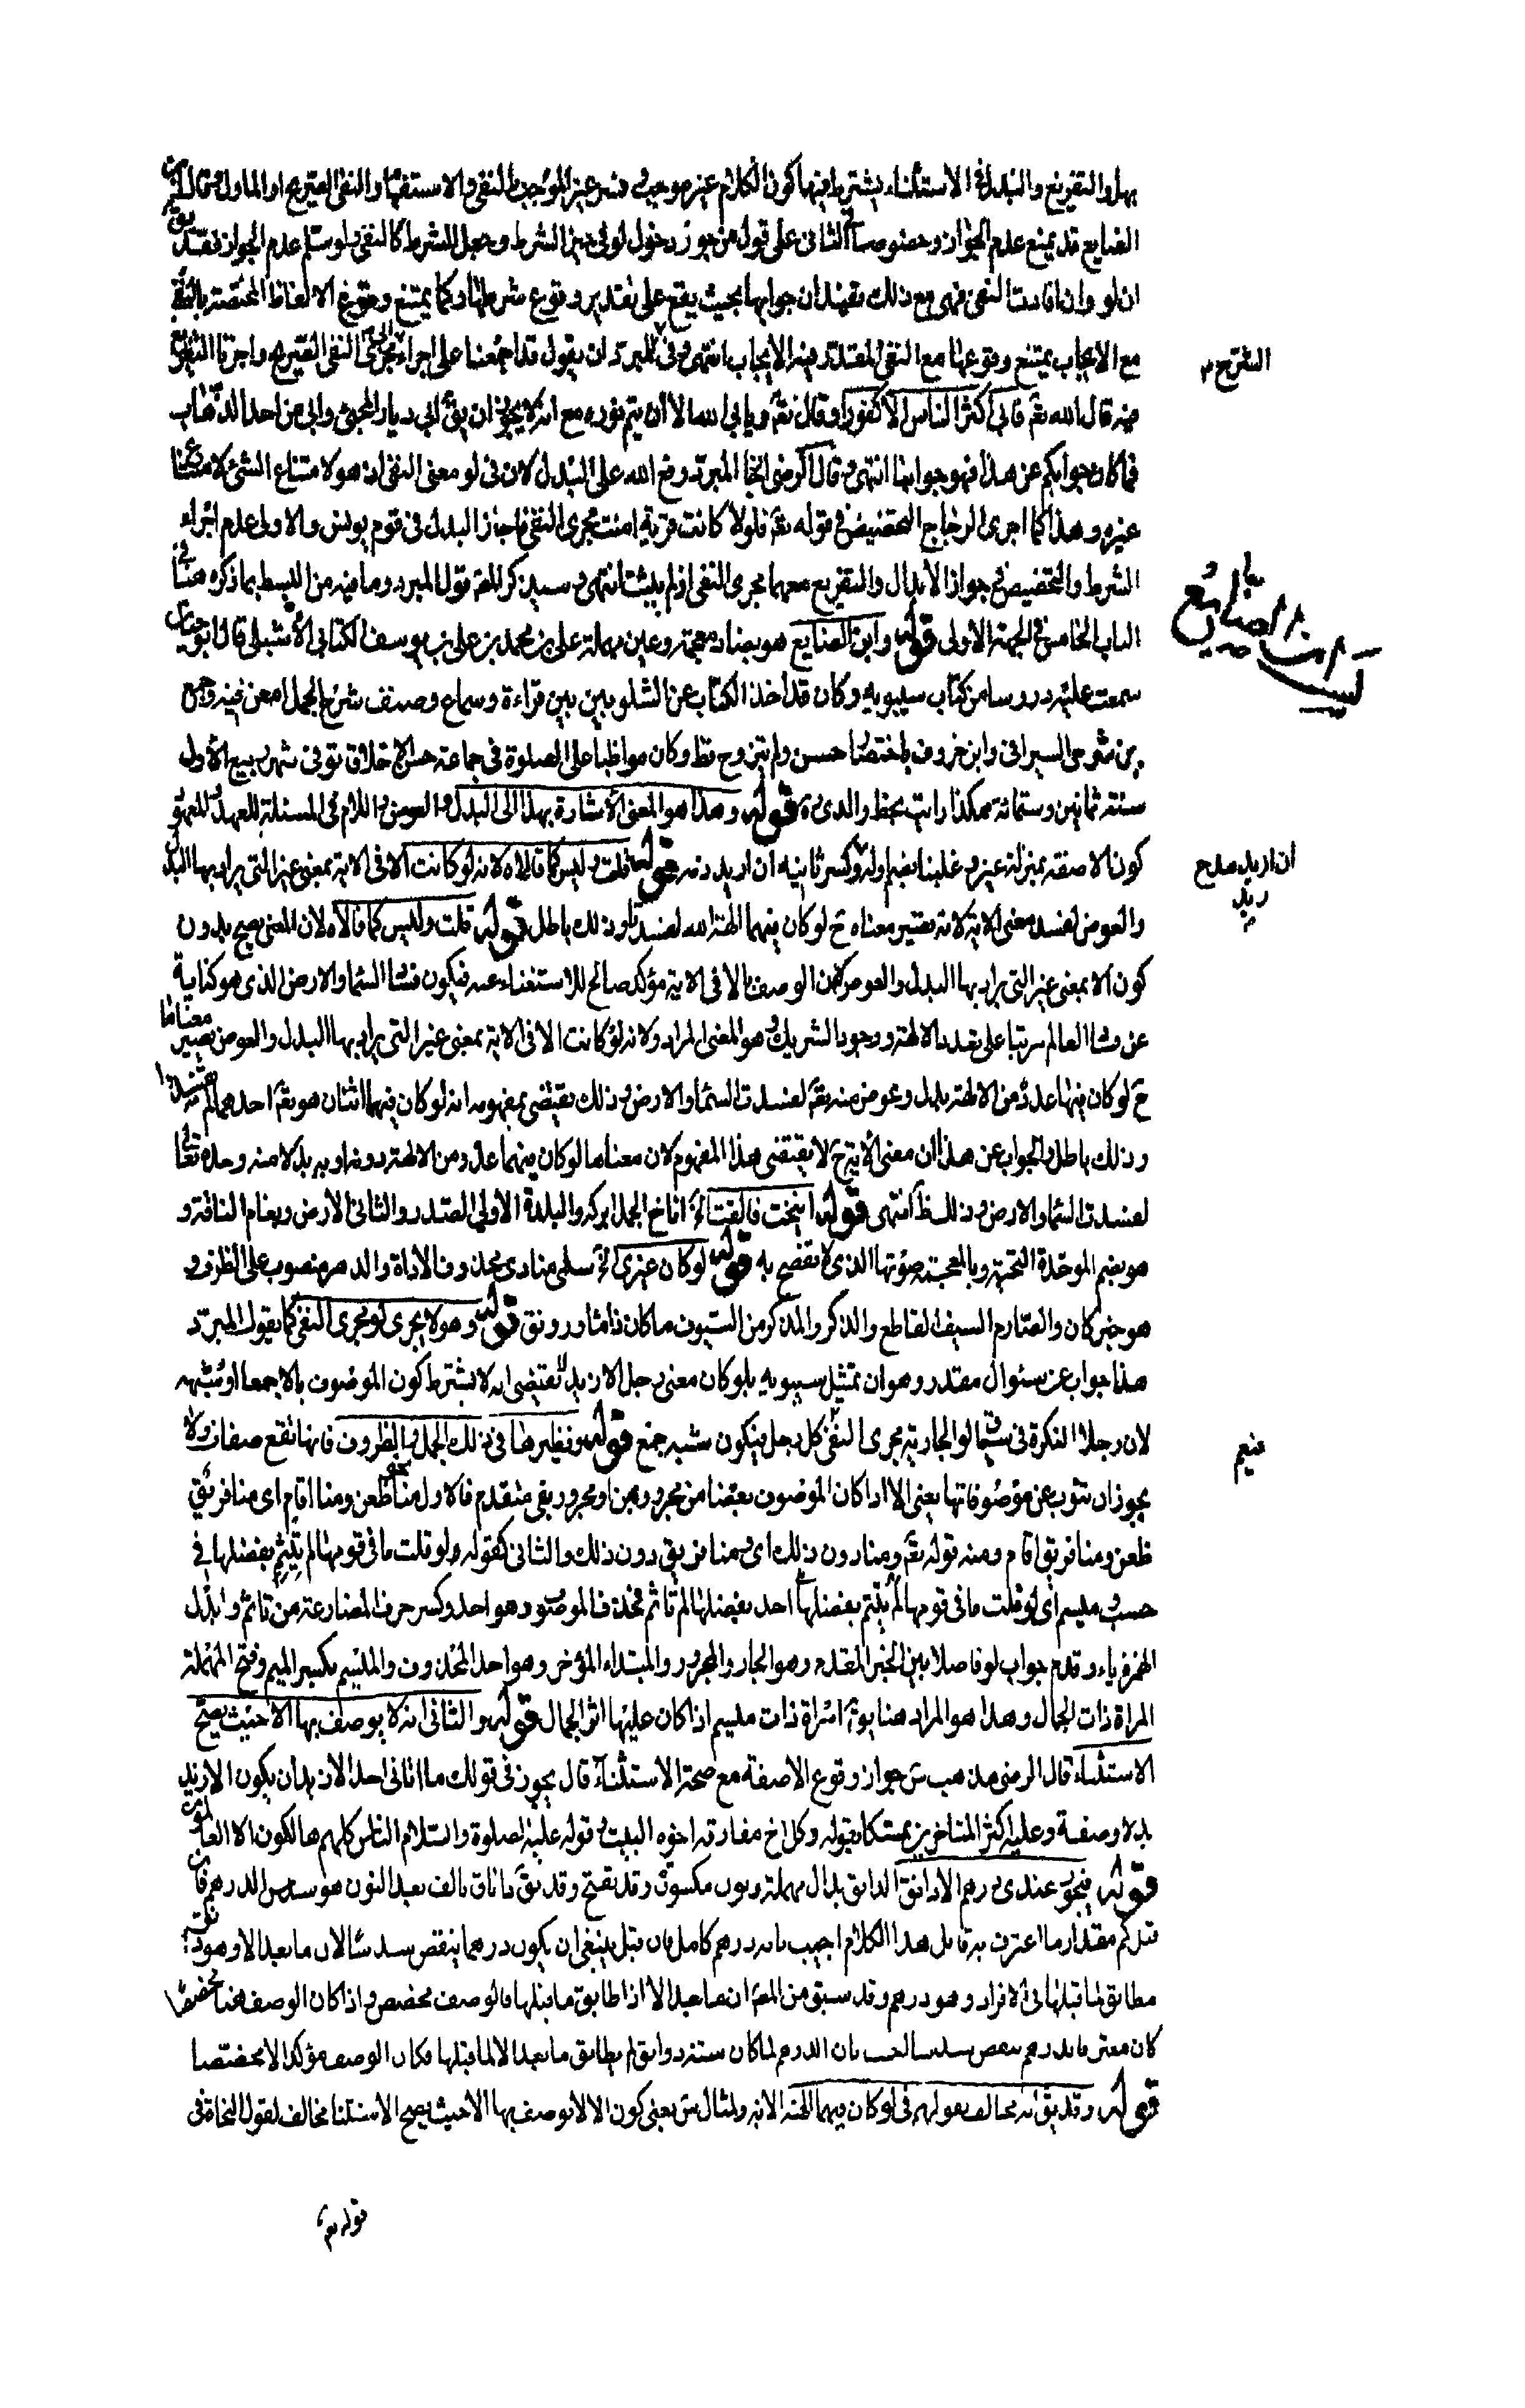 بها والتفريغ والبدل في الاستثناء يشترط فيهما كون الكلام غير موجب وفسر غير الموجب بالنفي والاستفهام والنفي الصريح او الماول قال ابن
الضايع قد يمنع عدم الجواز وخصوصا الثاني على قول من جوز دخول لو في حيز الشرط وجعل الشرط كالنفي ولو سلم عدم الجواز فقد يق
ان لو وان افادت النفي فهي مع ذلك تفهم ان جوابها بحيث يقع على تقدير وقوع شرطها وكما يمتنع وقوع الالفاظ المختصة بالنفي
مع الايجاب يمتنع وقوعها مع النفي المقدر فيه الايجاب انتهى وللمبرد ان يقول قد اجمعنا على اجراء ابى مجرى النفي الصريح واجزنا التفريغ
فيه قال الله تعم فابى اكثر الناس الا كفورا وقال تعم ويابى الله الا ان يتم نوره مع انه لا يجوز ان يق ابى ديار المجئ وابى من احد الذهاب
فما كان جوابكم عن هذا فهو جوابنا انتهى وقال الرضى اجاز المبرد رفع الله على البدل لان في لو معنى النفي اذ هو لامتناع الشئ لامتناع
غيره وهذا كما اجرى الزجاج التحضيض في قوله تعم فلولا كانت قرية امنت مجرى النفي فاجاز البدل في قوم يونس والاولى عدم اجراء
الشرط والتحضيض في جواز الابدال والتفريغ معهما مجرى النفي اذ لم يثبت انتهى وسيذكر المص قول المبرد وما فيه من البسط بما ذكره هنا في
الباب الخامس في الجهة الاولى قوله وابن الضايع هو بضاد معجمة وعين مهملة على بن محمد بن على بن يوسف الكتامي الاشبيلي قال ابو حيان
سمعت عليه دروسا من كتاب سيبويه وكان قد اخذ الكتاب عن الشلوبين بين قراءة وسماع وصنف شرح الجمل امعن فيه وجمع
بين شرحى السيرافى وابن خروف باختصار حسن ولم يتزوج قط وكان مواظبا على الصلوة في جماعة حسن الاخلاق توفى شهر ربيع الاول
سنة ثمانين وستمائة هكذا رايت بخط والدى ره قوله وهذا هو المعنى الاشارة بهذا الى البدل والعوض واللام في المسئلة للعهد والمعهود
كون الا صفة بمنزلة غير وغلبنا بضم اوله وكسر ثانيه ان اريد ذم قوله قلت وليس كما قالاه لانه لو كانت الا في الاية بمعنى غير التي يراد بها البدل
والعوض لفسد معنى الاية لانه يصير معناه ح لو كان فيهما الهة الله لفسدتا وذلك باطل قوله قلت وليس كما قالاه لان المعنى يصح بدون
كون الا بمعنى غير التي يراد بها البدل والعوض لان الوصف بالا في الاية مؤكد صالح للاستغناء عنه فيكون فساد السماء والارض الذي هو كناية
عن فساد العالم مرتبا على تعدد الالهة ووجود الشريك وهو المعنى المراد ولانه لو كانت الا في الاية بمعنى غير التي يراد بها البدل والعوض يصير معناها
ح لو كان فيهما عدد من الالهة بدل وعوض منه تعم لفسدت السماء والارض وذلك يقتضى بمفهومه انه لو كان فيهما اثنان هو تعم احدهما لم تفسدا
وذلك باطل والجواب عن هذا ان معنى الاية ح لا يقتضى هذا المفهوم لان معناها لو كان فيهما عدد من الالهة دونه او به بدلا منه وحده تعالى
لفسدت السماء والارض وذلك ظ انتهى قوله انيخت فالقت اناخ الجمل ابركه والبلدة الاولى الصدر والثانى الارض وبغام الناقة و
هو بضم الموحدة التحتية وبالمعجمة صوتها الذي لا تفصح به قوله لو كان غيرى سلمى منادى محذوف الاداة والدهر منصوب على الظرف و
هو خبر كان والصارم السيف القاطع والذكر والمذكر من السيوف ما كان ذا ماء ورونق قوله وهو لا يجرى لو مجرى النفي كما يقول المبرد
هذا جواب عن سئوال مقدر وهو ان تمثيل سيبويه بلو كان معنى رجل الا زيد يقتضى انه لا يشترط كون الموصوف بالا جمعا او شبهه
لان رجلا النكرة في سياق لو الجارية مجرى النفي كل رجل فيكون شبه جمع قوله ونظيرها في ذلك الجمل والظروف فانها تقع صفات ولا
يجوز ان تنوب عن موصوفاتها يعني الا اذا كان الموصوف بعضا من مجرور بمن او مجرور بفى متقدم فالاول نحو منا ظعن ومنا اقام اى منا فريق
ظعن ومنا فريق اقام ومنه قوله تعم ومنا دون ذلك اى ومنا فريق دون ذلك والثانى كقوله ولو قلت ما في قومها لم تيثم يفضلها في
حسب وميسم اى لو قلت ما في قومها لم تيثم يفضلها احد يفضلها لم تاثم فحذف الموصوف وهو احد وكسر حرف المضارعة من تاثم وابدل
الهمزة ياء وقدم جواب لو فاصلا بين الخبر المقدم وهو الجار والمجرور والمبتداء المؤخر وهو احد المحذوف والميسم بكسر الميم وفتح المهملة
المراة ذات الجمال وهذا هو المراد هنا يق امراة ذات ميسم اذا كان عليها اثر الجمال قوله والثانى انه لا يوصف بها الا حيث يصح
الاستثناء قال الرضى مذهب س جواز وقوع الا صفة مع صحة الاستثناء قال يجوز في قولك ما اتانى احد الا زيد ان يكون الا زيد
بدلا وصفة وعليه اكثر المتاخرين تمسكا بقوله وكل اخ مفارقه اخوه البيت وقوله عليه الصلوة والسلام الناس كلهم هالكون الا العالمون
قوله فيجوز عندى درهم الا دانق الدانق بدال مهملة ونون مكسورة وقد تفتح وقد يق داناق بالف بعد النون هو سدس الدرهم فان
قيل كم مقدار ما اعترف به قائل هذا الكلام اجيب بانه درهم كامل فان قيل ينبغى ان يكون درهما ينقص سدسا لان ما بعد الا وهو دانق
مطابق لما قبلها في الافراد وهو درهم وقد سبق من المص ان ما بعد الا اذا طابق ما قبلها فالوصف مخصص واذا كان الوصف هنا مخصصا
كان معترفا بدرهم ينقص سدسا اجيب بان الدرهم لما كان ستة دوانق لم يطابق ما بعد الا لما قبلها فكان الوصف مؤكدا لا مخصصا
قوله وقد يق انه مخالف لقولهم في لو كان فيهما الهة الاية ولمثال س يعنى كون الا لا يوصف بها الا حيث يصح الاستثناء مخالف لقول النحاة في
الصريح
ابن الضايع
ان اريد مدح
زيد
قوله تعم